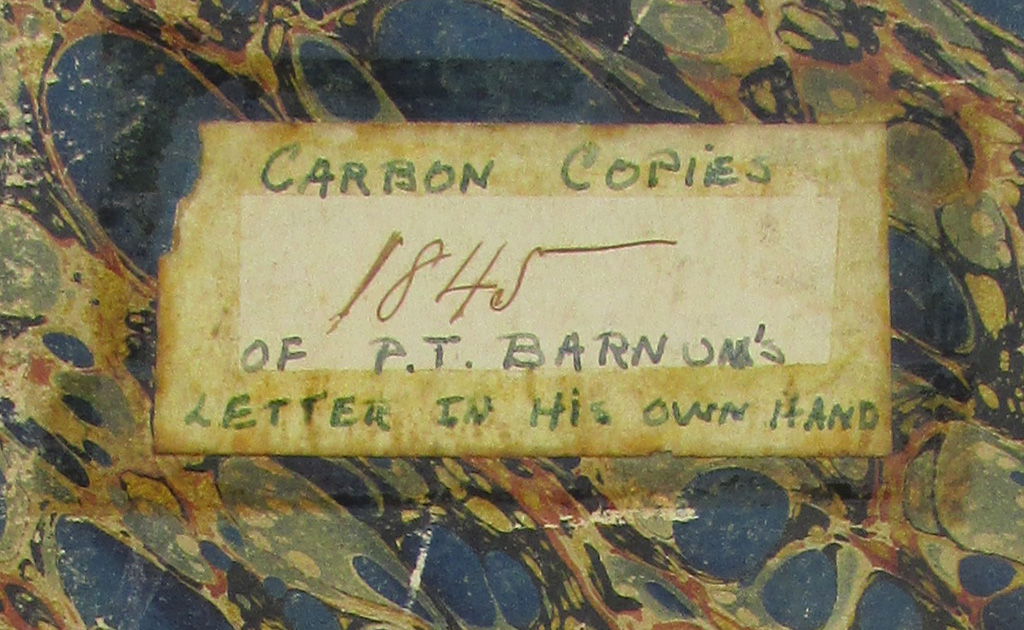 CARBON COPIES
1845
OF P.T. BARNUM'S
LETTER IN HIS OWN HAND